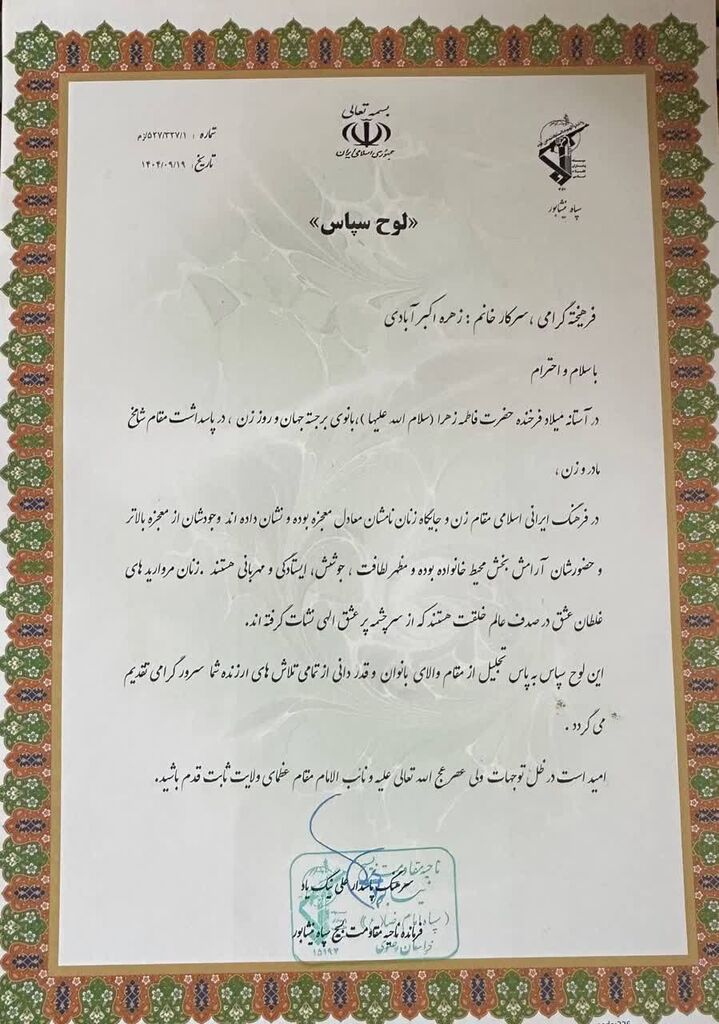 بسمه تعالی
جمهوری اسلامی ایران
شماره : ۵۲۷/۳۲۷/۱/زم
تاریخ: ۱۴۰۴/۰۹/۱۹
سپاه نیشابور
«لوح سپاس»
فرهیخته گرامی ، سرکار خانم : زهره اکبرآبادی
با سلام و احترام
در آستانه میلاد فرخنده حضرت فاطمه زهرا (سلام الله علیها )،بانوی برجسته جهان و روز زن ، در پاسداشت مقام شامخ
مادر و زن ،
در فرهنگ ایرانی اسلامی مقام زن و جایگاه زنان نامشان معادل معجزه بوده و نشان داده اند وجودشان از معجزه بالاتر
و حضورشان آرامش بخش محیط خانواده بوده و مظهر لطافت ، جوشش، ایستادگی و مهربانی هستند .زنان مروارید های
غلطان عشق در صدف عالم خلقت هستند که از سرچشمه پر عشق الهی نشات گرفته اند.
این لوح سپاس به پاس تجلیل از مقام والای بانوان و قدردانی از تمامی تلاش های ارزنده شما سرور گرامی تقدیم
می گردد .
امید است در ظل توجهات ولی عصر عج الله تعالی علیه و نائب الامام مقام عظمای ولایت ثابت قدم باشید.
ناحیه مقاومت
سرهنگ پاسدار علی نیک یاد
فرمانده ناحیه مقاومت بسیج سپاه نیشابور
خراسان رضوی
۱۵۱۹۲